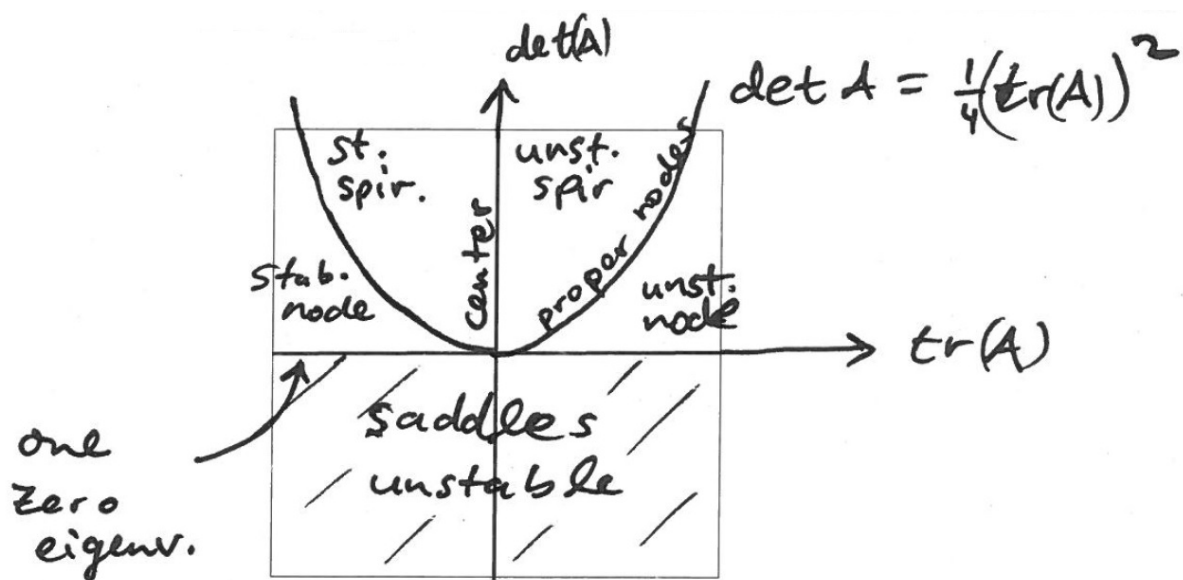 det(A)
det A = 1/4(tr(A))^2
st.
spir.
unst.
spir
center
proper nodes
stab.
node
unst.
node
tr(A)
saddles
unstable
one
zero
eigenv.